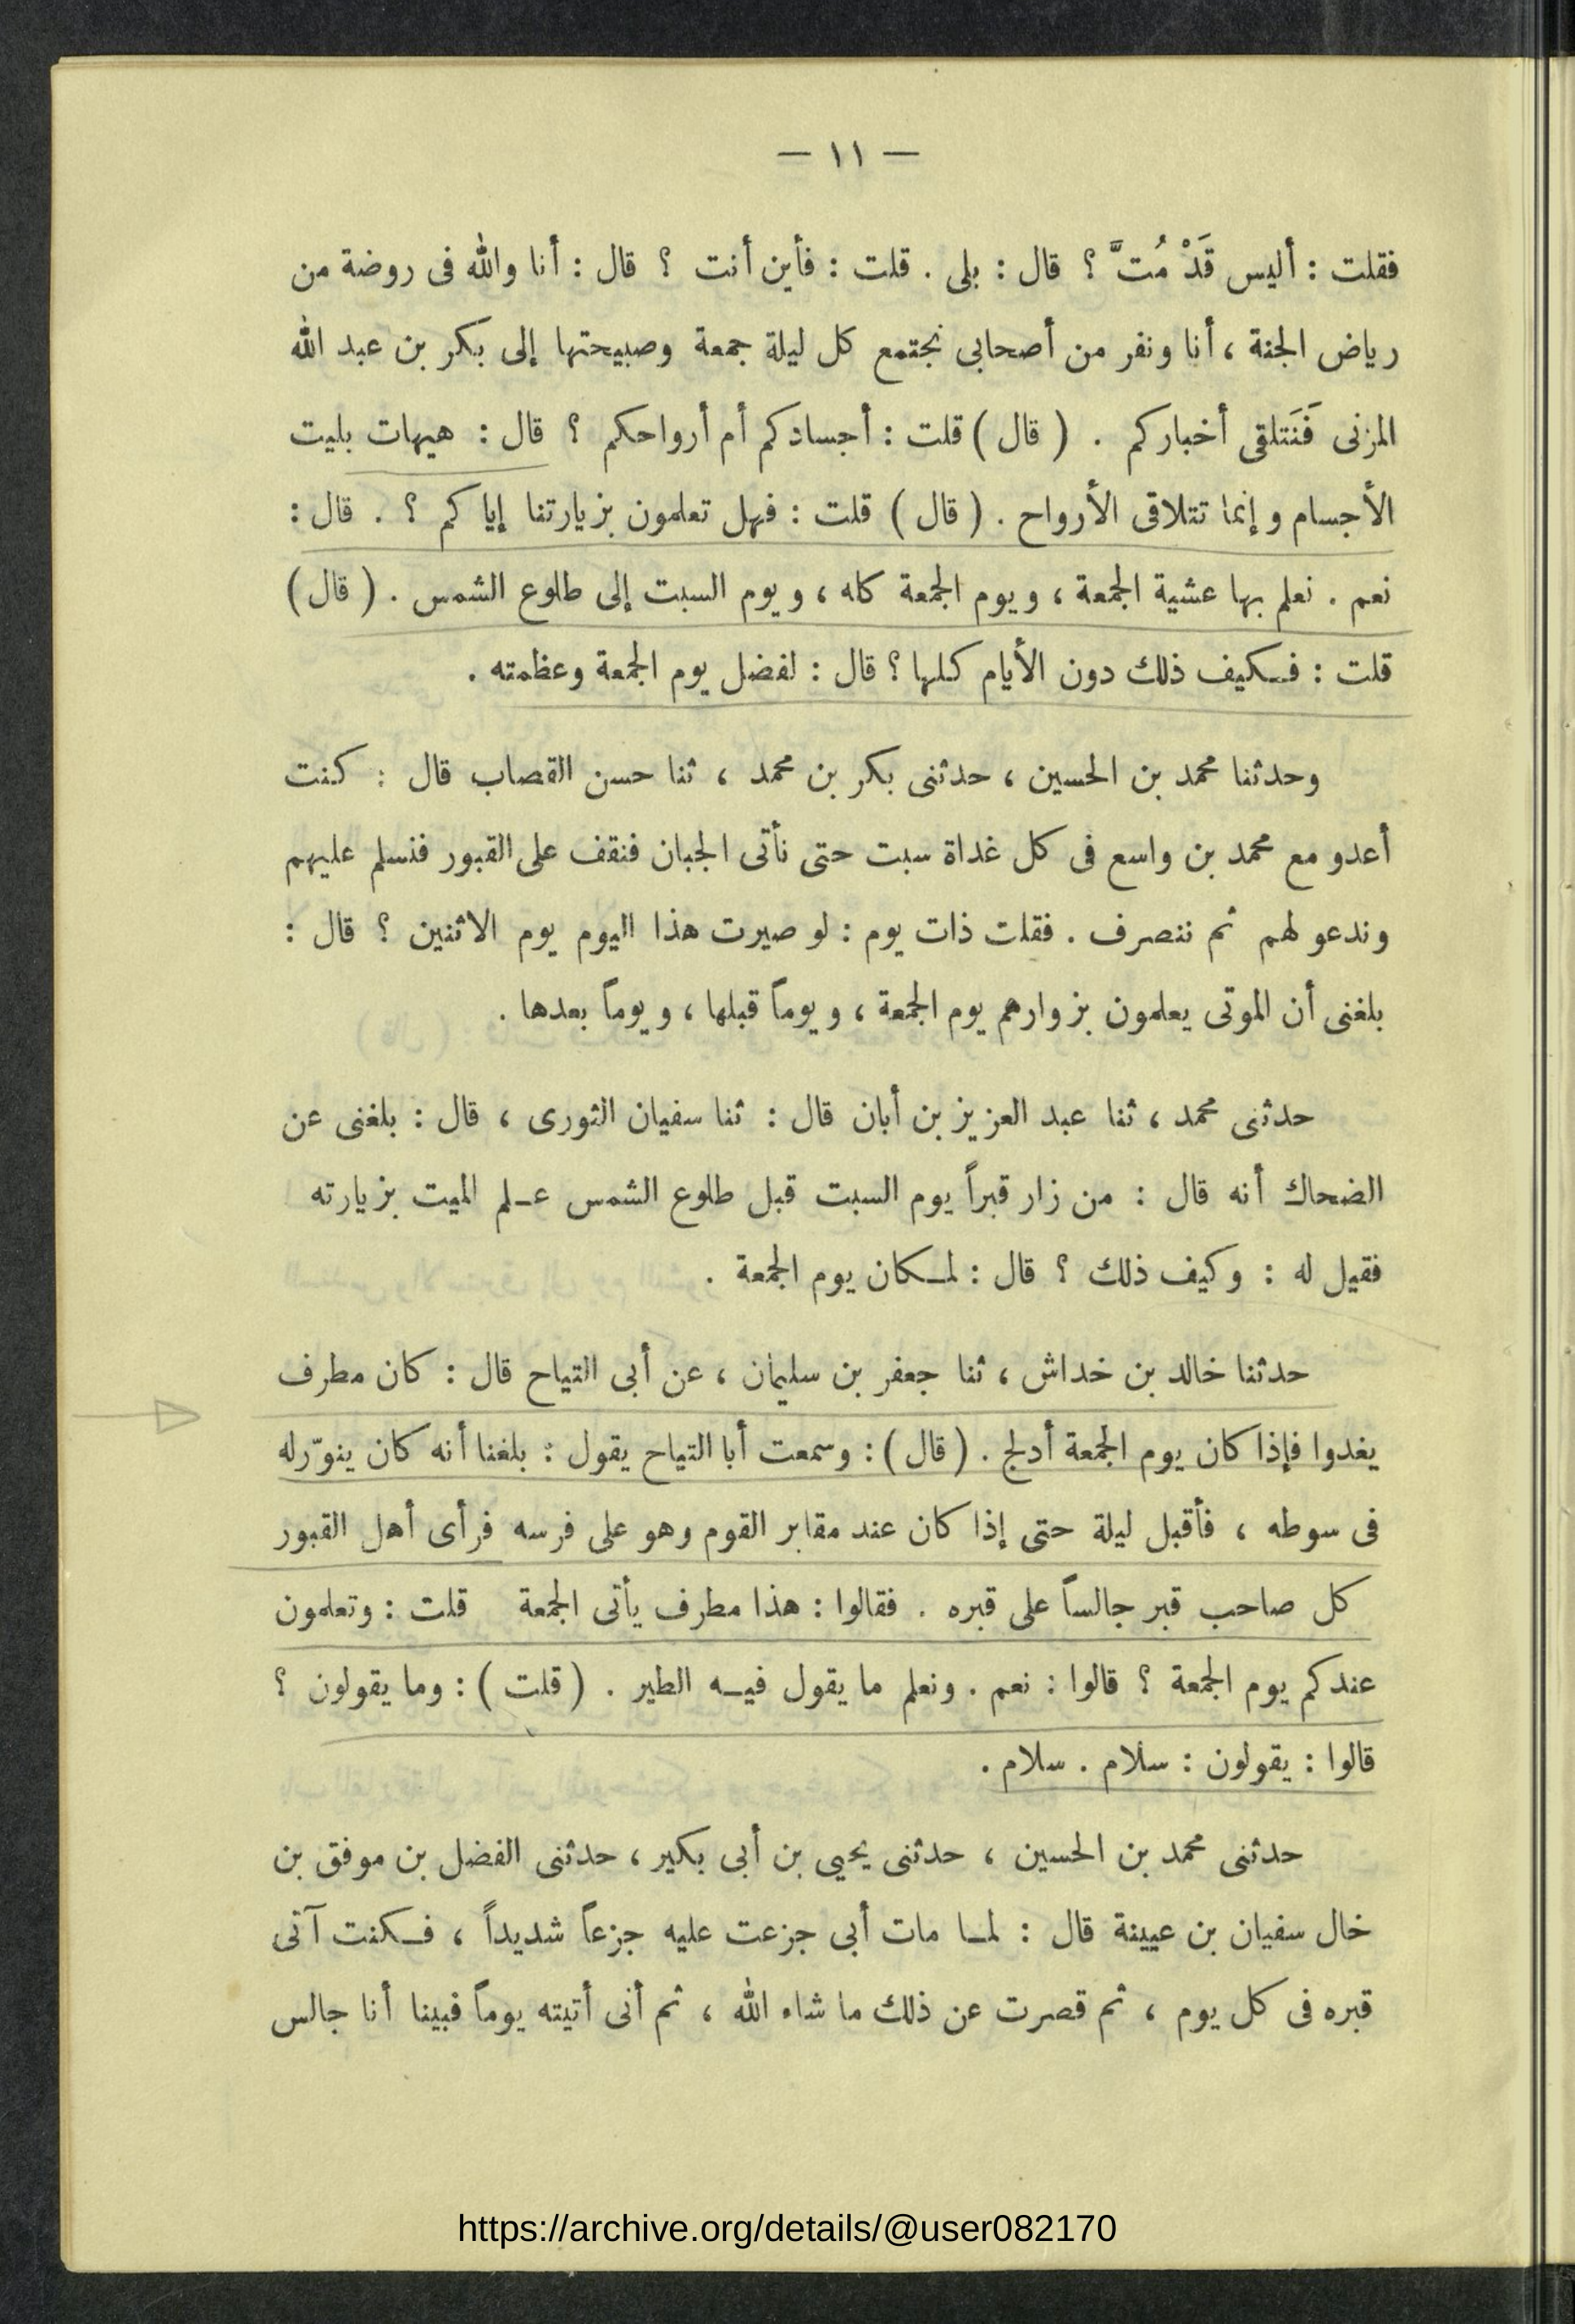 — ١١ —
فقلت : أليس قَدْ مُتَّ ؟ قال : بلى . قلت : فأين أنت ؟ قال : أنا والله فى روضة من
رياض الجنة ، أنا ونفر من أصحابى نجتمع كل ليلة جمعة وصبيحتها إلى بكر بن عبد الله
المزنى فَنَتلقى أخباركم . ( قال ) قلت : أجسادكم أم أرواحكم ؟ قال : هيهات بليت
الأجسام و إنما تتلاقى الأرواح . ( قال ) قلت : فهل تعلمون بزيارتنا إياكم ؟ . قال :
نعم . نعلم بها عشية الجمعة ، ويوم الجمعة كله ، ويوم السبت إلى طلوع الشمس . ( قال )
قلت : فكيف ذلك دون الأيام كلها ؟ قال : لفضل يوم الجمعة وعظمته .
وحدثنا محمد بن الحسين ، حدثنى بكر بن محمد ، ثنا حسن القصاب قال : كنت
أعدو مع محمد بن واسع فى كل غداة سبت حتى نأتى الجبان فنقف على القبور فنسلم عليهم
وندعو لهم ثم ننصرف . فقلت ذات يوم : لو صيرت هذا اليوم يوم الاثنين ؟ قال :
بلغنى أن الموتى يعلمون بزوارهم يوم الجمعة ، ويوماً قبلها ، ويوماً بعدها .
حدثنى محمد ، ثنا عبد العزيز بن أبان قال : ثنا سفيان الثورى ، قال : بلغنى عن
الضحاك أنه قال : من زار قبراً يوم السبت قبل طلوع الشمس علم الميت بزيارته
فقيل له : وكيف ذلك ؟ قال : لمكان يوم الجمعة .
حدثنا خالد بن خداش ، ثنا جعفر بن سليمان ، عن أبى التياح قال : كان مطرف
يغدوا فإذا كان يوم الجمعة أدلج . ( قال ) : وسمعت أبا التياح يقول : بلغنا أنه كان ينوّر له
فى سوطه ، فأقبل ليلة حتى إذا كان عند مقابر القوم وهو على فرسه فرأى أهل القبور
كل صاحب قبر جالساً على قبره . فقالوا : هذا مطرف يأتى الجمعة قلت : وتعلمون
عندكم يوم الجمعة ؟ قالوا : نعم . ونعلم ما يقول فيه الطير . ( قلت ) : وما يقولون ؟
قالوا : يقولون : سلام . سلام .
حدثنى محمد بن الحسين ، حدثنى يحيى بن أبى بكير ، حدثنى الفضل بن موفق بن
خال سفيان بن عيينة قال : لما مات أبى جزعت عليه جزعاً شديداً ، فكنت آتى
قبره فى كل يوم ، ثم قصرت عن ذلك ما شاء الله ، ثم أنى أتيته يوماً فبينا أنا جالس
https://archive.org/details/@user082170